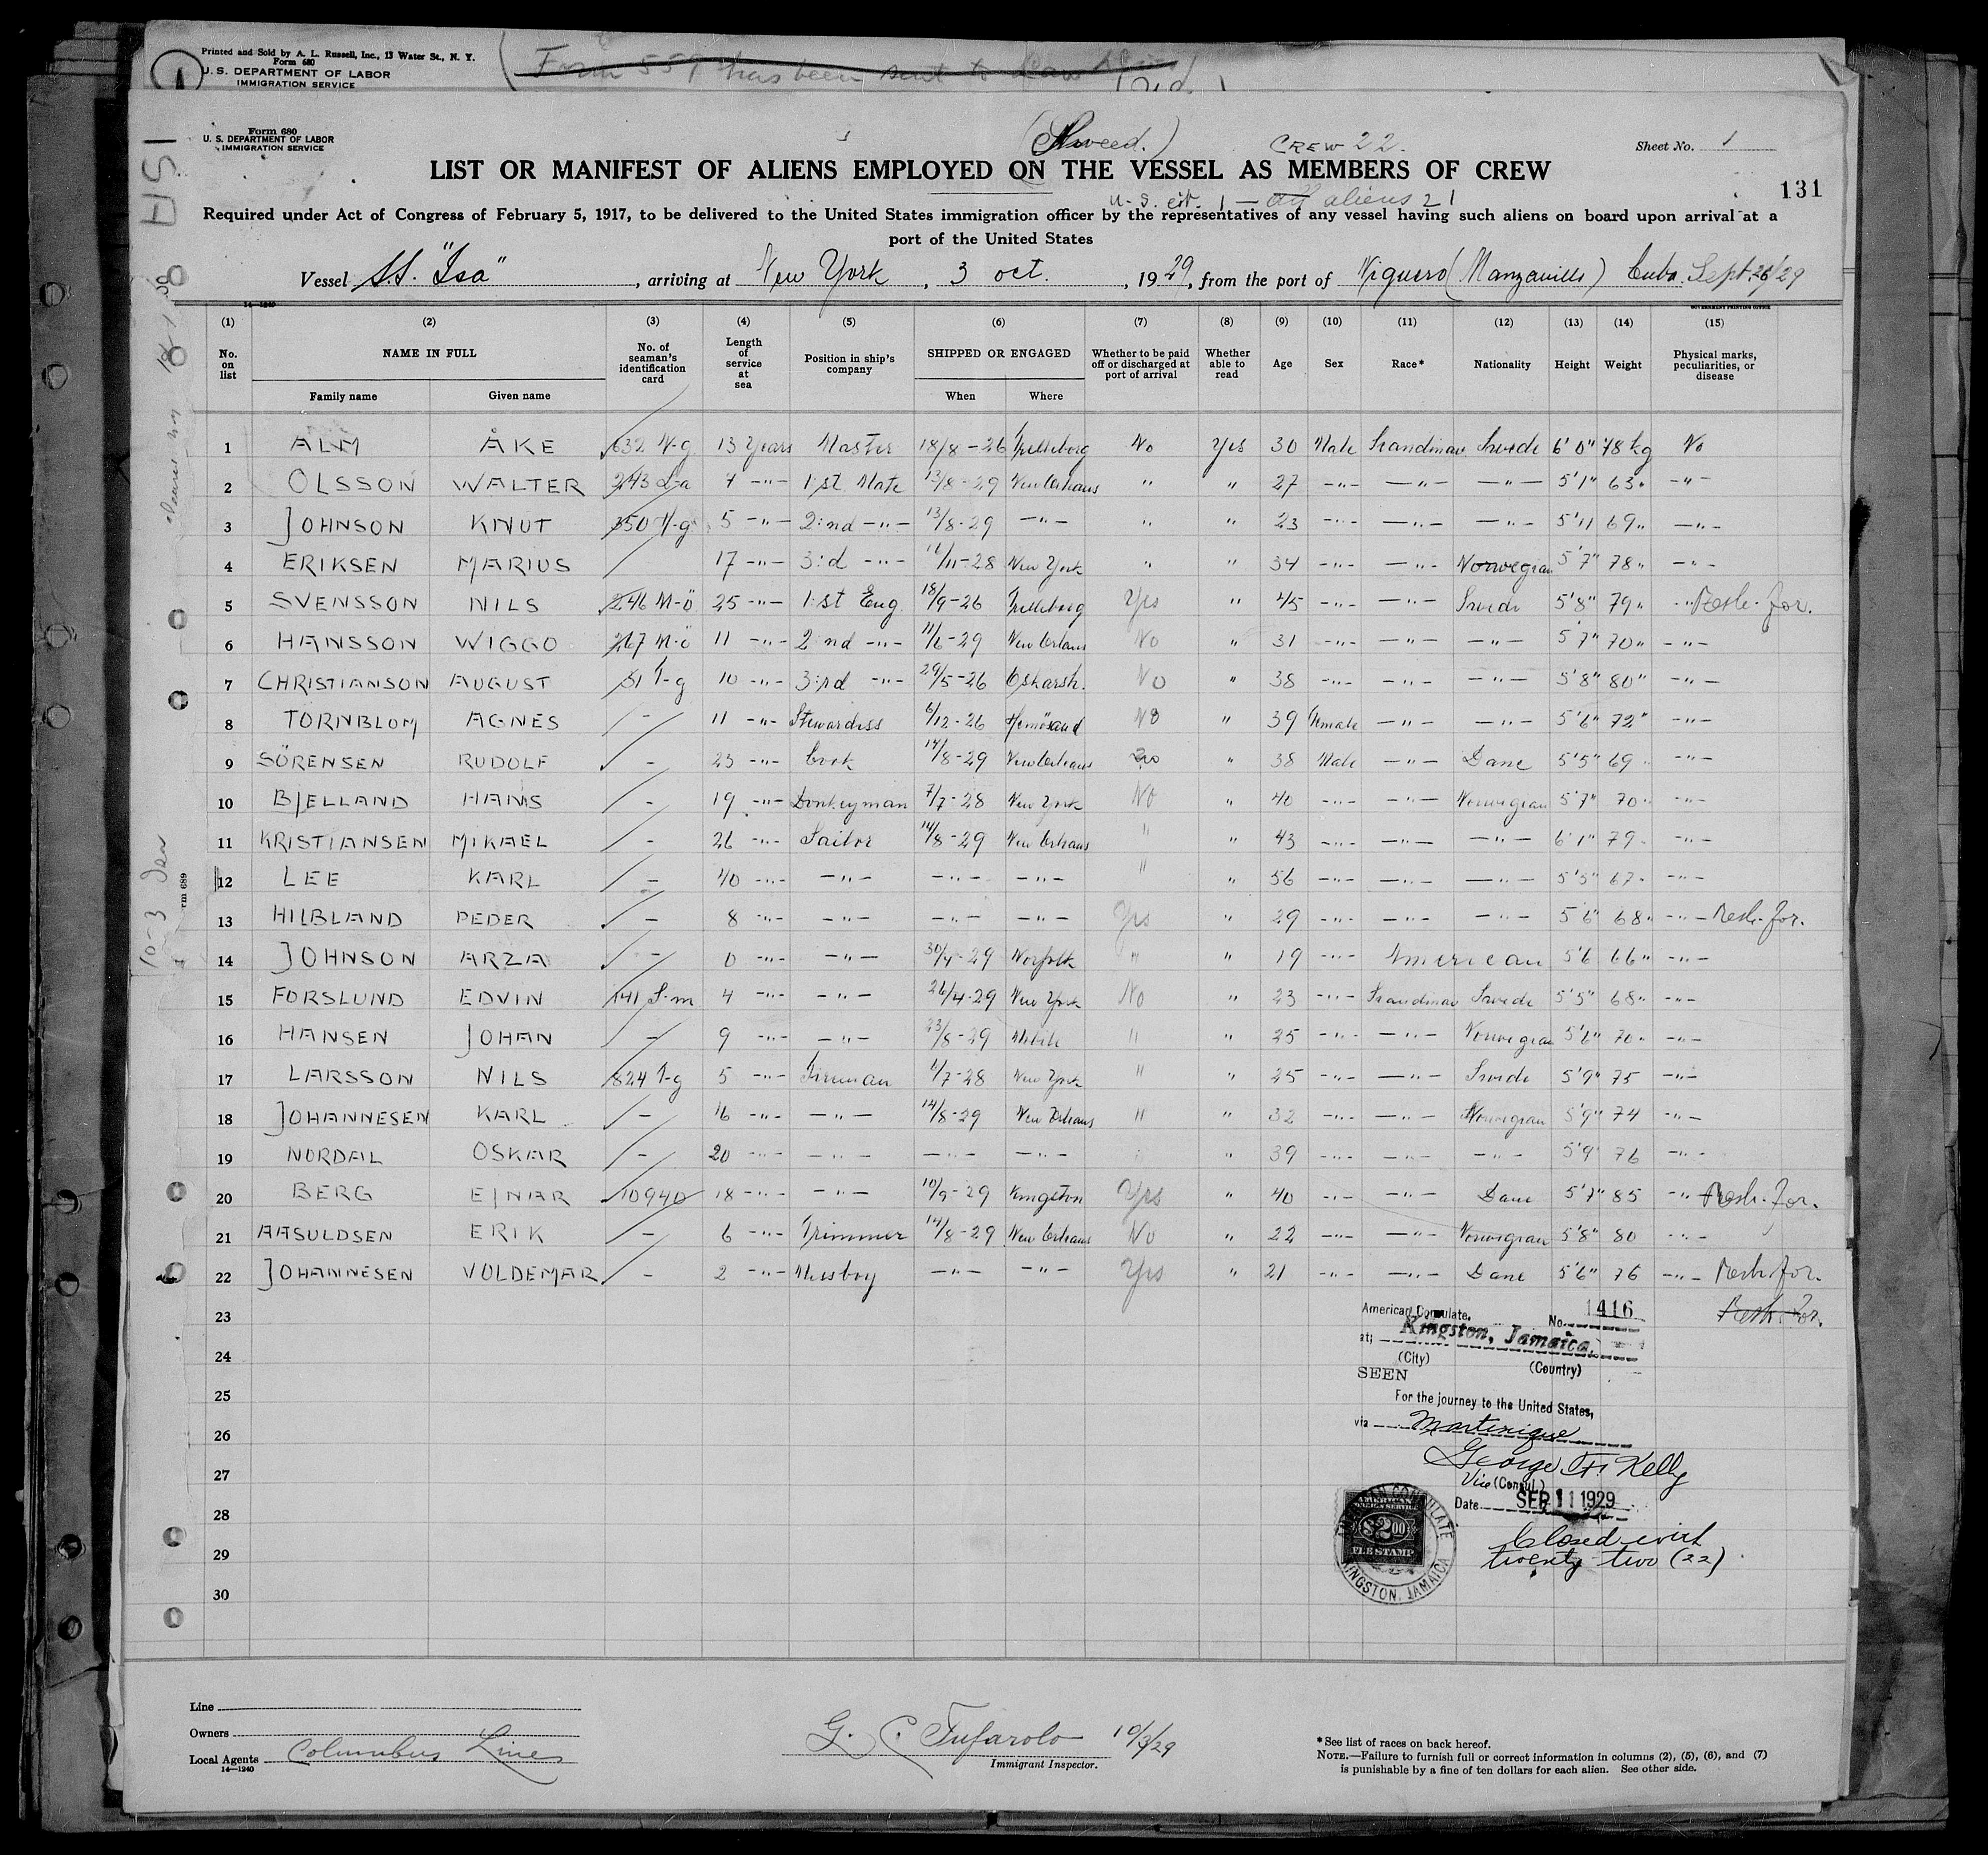 Printed and Sold by A. L. Russell, Inc., 13 Water St., N. Y.
Form 680
U. S. DEPARTMENT OF LABOR
IMMIGRATION SERVICE
Form 559 has been sent to
Form 680
U. S. DEPARTMENT OF LABOR
IMMIGRATION SERVICE
(Sweed.)
CREW 22.
Sheet No. 1
LIST OR MANIFEST OF ALIENS EMPLOYED ON THE VESSEL AS MEMBERS OF CREW
131
U.S. cit. 1 — aliens 21
Required under Act of Congress of February 5, 1917, to be delivered to the United States immigration officer by the representatives of any vessel having such aliens on board upon arrival at a
port of the United States
Vessel S.S. "Isa", arriving at New York, 3 oct., 1929, from the port of Niquero (Manzanillo) Cuba. Sept. 26/29
14-1240
GOVERNMENT PRINTING OFFICE
(1) (2) (3) (4) (5) (6) (7) (8) (9) (10) (11) (12) (13) (14) (15)
No. on list NAME IN FULL No. of seaman's identification card Length of service at sea Position in ship's company SHIPPED OR ENGAGED Whether to be paid off or discharged at port of arrival Whether able to read Age Sex Race* Nationality Height Weight Physical marks, peculiarities, or disease
Family name Given name When Where
1 ALM ÅKE 632 N-g 13 Years Master 18/8-26 Trelleborg No Yes 30 Male Scandinav Swede 6'0" 78 kg No
2 OLSSON WALTER 243 L-a 7 -"- 1:st Mate 13/8-29 New Orleans " " 27 -"- -"- -"- 5'1" 63 " -"-
3 JOHNSON KNUT 350 -g 5 -"- 2:nd -"- 13/8-29 -"- " " 23 -"- -"- -"- 5'11 69 " -"-
4 ERIKSEN MARIUS 17 -"- 3:d -"- /11-28 New York " " 34 -"- -"- Norwegian 5'7" 78 " -"-
5 SVENSSON NILS 246 M-ö 25 -"- 1:st Eng. 18/9-26 Trelleborg Yes " 45 -"- -"- Swede 5'8" 79 " -"- Resh. for.
6 HANSSON WIGGO 267 M-ö 11 -"- 2 nd -"- 11/6-29 New Orleans No " 31 -"- -"- -"- 5'7" 70 " -"-
7 CHRISTIANSON AUGUST 51 T-g 10 -"- 3:rd -"- 29/5-26 Oskarsh. No " 38 -"- -"- -"- 5'8" 80 " -"-
8 TORNBLOM AGNES - 11 -"- Stewardess 6/12-26 Hernösand No " 39 Female -"- -"- 5'6" 72 " -"-
9 SÖRENSEN RUDOLF - 23 -"- Cook 14/8-29 New Orleans No " 38 Male -"- Dane 5'5" 69 " -"-
10 BJELLAND HANS - 19 -"- Donkeyman 7/7-28 New York No " 40 -"- -"- Norwegian 5'7" 70 " -"-
11 KRISTIANSEN MIKAEL - 26 -"- Sailor 14/8-29 New Orleans " " 43 -"- -"- -"- 6'1" 79 " -"-
12 LEE KARL - 40 -"- -"- -"- -"- " " 56 -"- -"- -"- 5'5" 67 " -"-
13 HILBLAND PEDER - 8 -"- -"- -"- -"- Yes " 29 -"- -"- -"- 5'6" 68 " -"- Resh. for.
14 JOHNSON ARZA - 0 -"- -"- 30/4-29 Norfolk " " 19 -"- American 5'6 66 " -"-
15 FORSLUND EDVIN 141 S-m 4 -"- -"- 26/4-29 New York No " 23 -"- Scandinav Swede 5'5" 68 " -"-
16 HANSEN JOHAN - 9 -"- -"- 23/8-29 Mobile " " 25 -"- -"- Norwegian 5'6" 70 " -"-
17 LARSSON NILS 824 T-g 5 -"- Fireman /7-28 New York " " 25 -"- -"- Swede 5'9" 75 -"-
18 JOHANNESEN KARL - 16 -"- -"- 14/8-29 New Orleans " " 32 -"- -"- Norwegian 5'9" 74 -"-
19 NORDAL OSKAR - 20 -"- -"- -"- -"- " " 39 -"- -"- -"- 5'9 76 -"-
20 BERG EJNAR 10940 18 -"- -"- 10/9-29 Kingston Yes " 40 -"- -"- Dane 5'7" 85 -"- Resh. for.
21 AASULDSEN ERIK - 6 -"- Trimmer 14/8-29 New Orleans No " 22 -"- -"- Norwegian 5'8" 80 -"-
22 JOHANNESEN VOLDEMAR - 2 -"- Messboy -"- -"- Yes " 21 -"- -"- Dane 5'6" 76 -"- Resh. for.
23 Resh. For.
24
25
26
27
28
29
30
American Consulate, No. 1416
at Kingston, Jamaica
(City) (Country)
SEEN
For the journey to the United States,
via Martinique
George F. Kelly
Vice (Consul.)
Date SEP 11 1929
AMERICAN CONSULATE
KINGSTON, JAMAICA
AMERICAN
FOREIGN SERVICE
$2.00
FEE STAMP
Closed with
twenty-two (22)
Line
Owners
Local Agents Columbus Lines
14-1240
G. C. Tufarolo 10/3/29
Immigrant Inspector.
*See list of races on back hereof.
NOTE.—Failure to furnish full or correct information in columns (2), (5), (6), and (7)
is punishable by a fine of ten dollars for each alien. See other side.